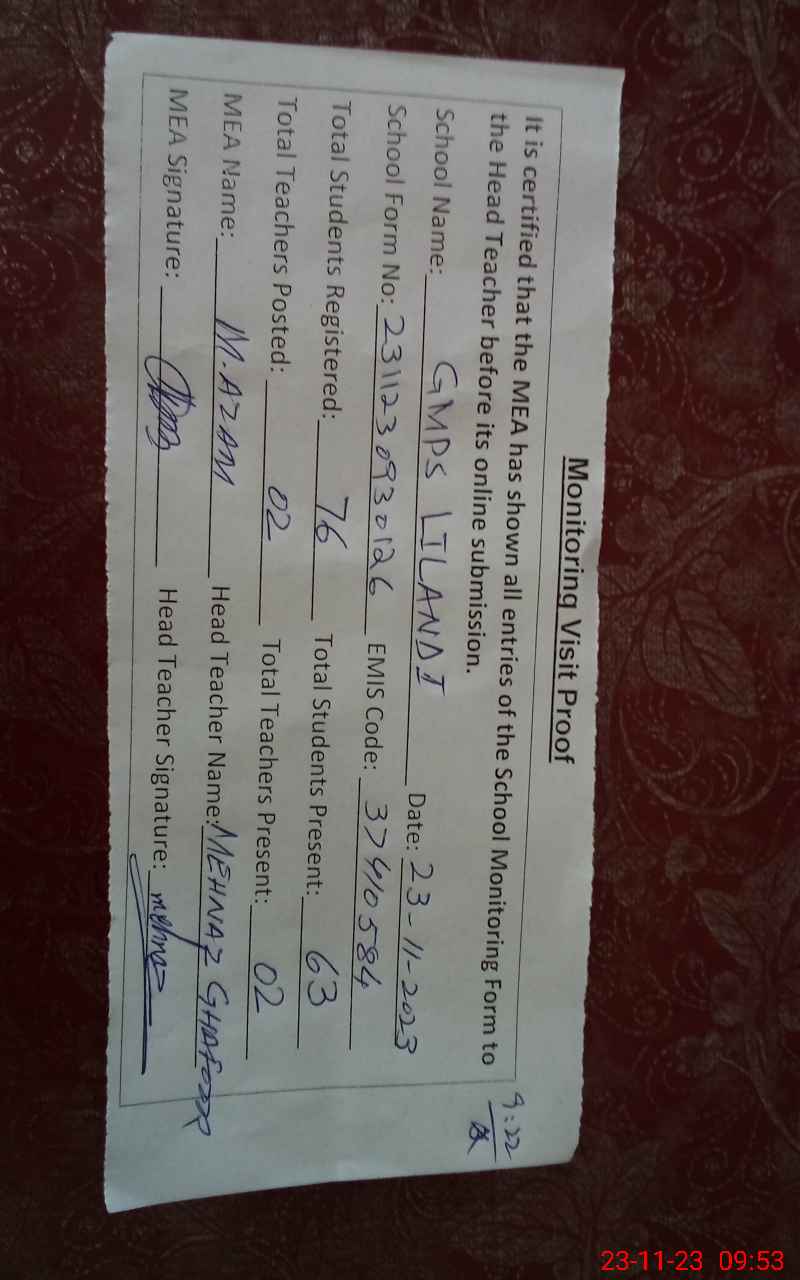 Monitoring Visit Proof
It is certified that the MEA has shown all entries of the School Monitoring Form to
the Head Teacher before its online submission.
9:22
School Name: GMPS LILANDI Date: 23-11-2023
School Form No: 2311230930126 EMIS Code: 37410584
Total Students Registered: 76 Total Students Present: 63
Total Teachers Posted: 02 Total Teachers Present: 02
MEA Name: M.AZAM Head Teacher Name: MEHNAZ GHAFOOR
MEA Signature: Head Teacher Signature: mehnaz
23-11-23 09:53